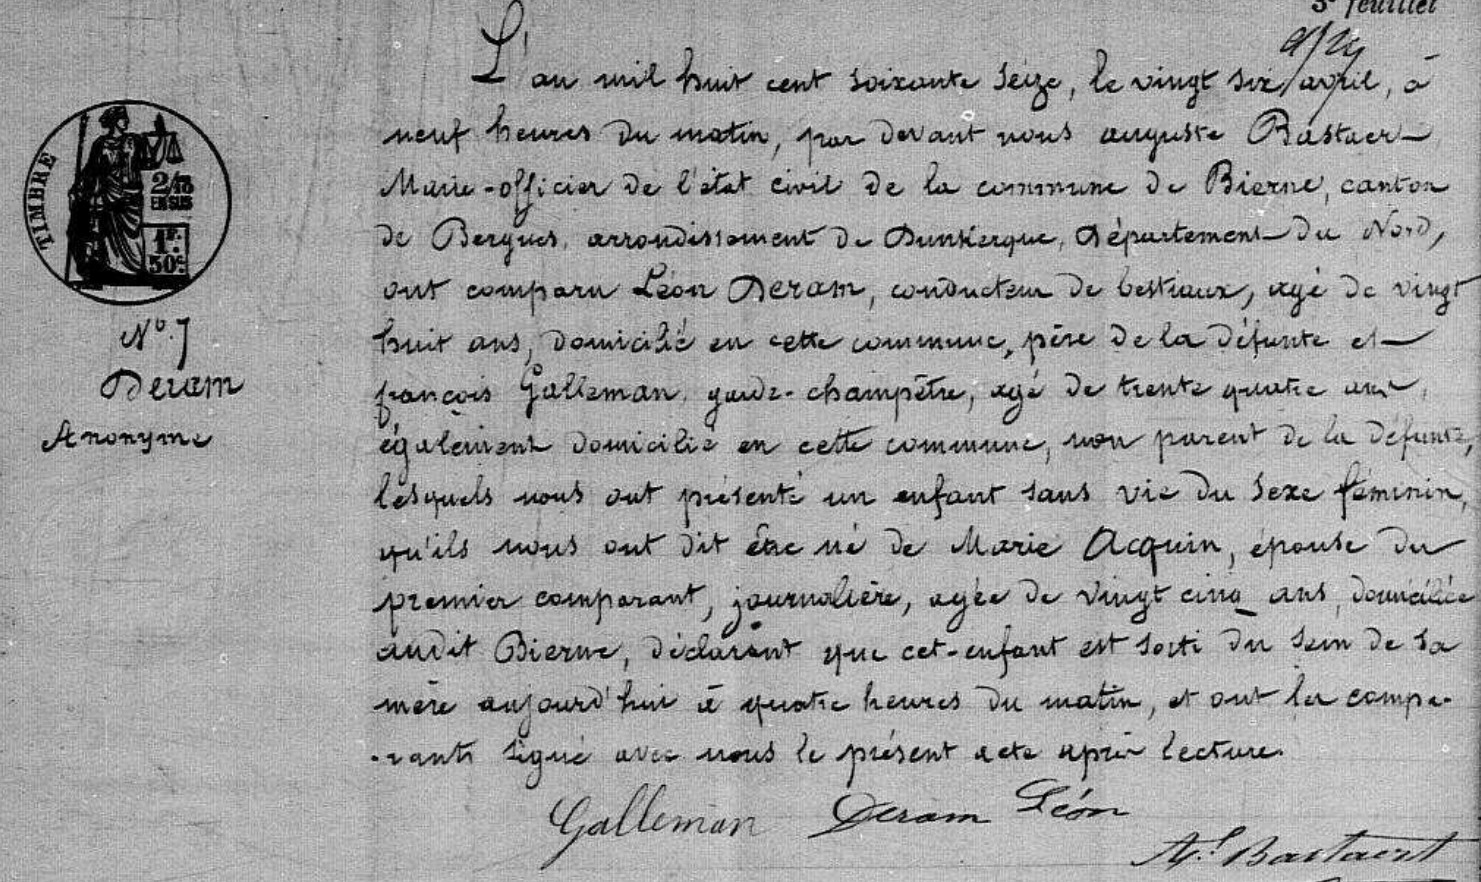 3e feuillet
L'an mil huit cent soixante seize, le vingt six avril, à
neuf heures du matin, par devant nous auguste Bastaer
Maire-officier de l'état civil de la commune de Bierne, canton
de Bergues, arrondissement de Dunkerque, Département du Nord,
ont comparu Léon Deram, conducteur de bestiaux, agé de vingt
huit ans, domicilié en cette commune, père de la défunte et
françois Galleman, garde-champêtre, agé de trente quatre ans,
également domicilié en cette commune, non parent de la défunte,
lesquels nous ont présenté un enfant sans vie du sexe féminin,
qu'ils nous ont dit être né de Marie Acquin, épouse du
premier comparant, journalière, agée de vingt cinq ans, domiciliée
audit Bierne, déclarant que cet-enfant est sorti du sein de sa
mère aujourd'hui à quatre heures du matin, et ont les compa-
-rants signé avec nous le présent acte après lecture.
Galleman Deram Léon
Ate Bastaert
TIMBRE
2/10
EN SUS
1F.
50c.
No. 7
Deram
Anonyme